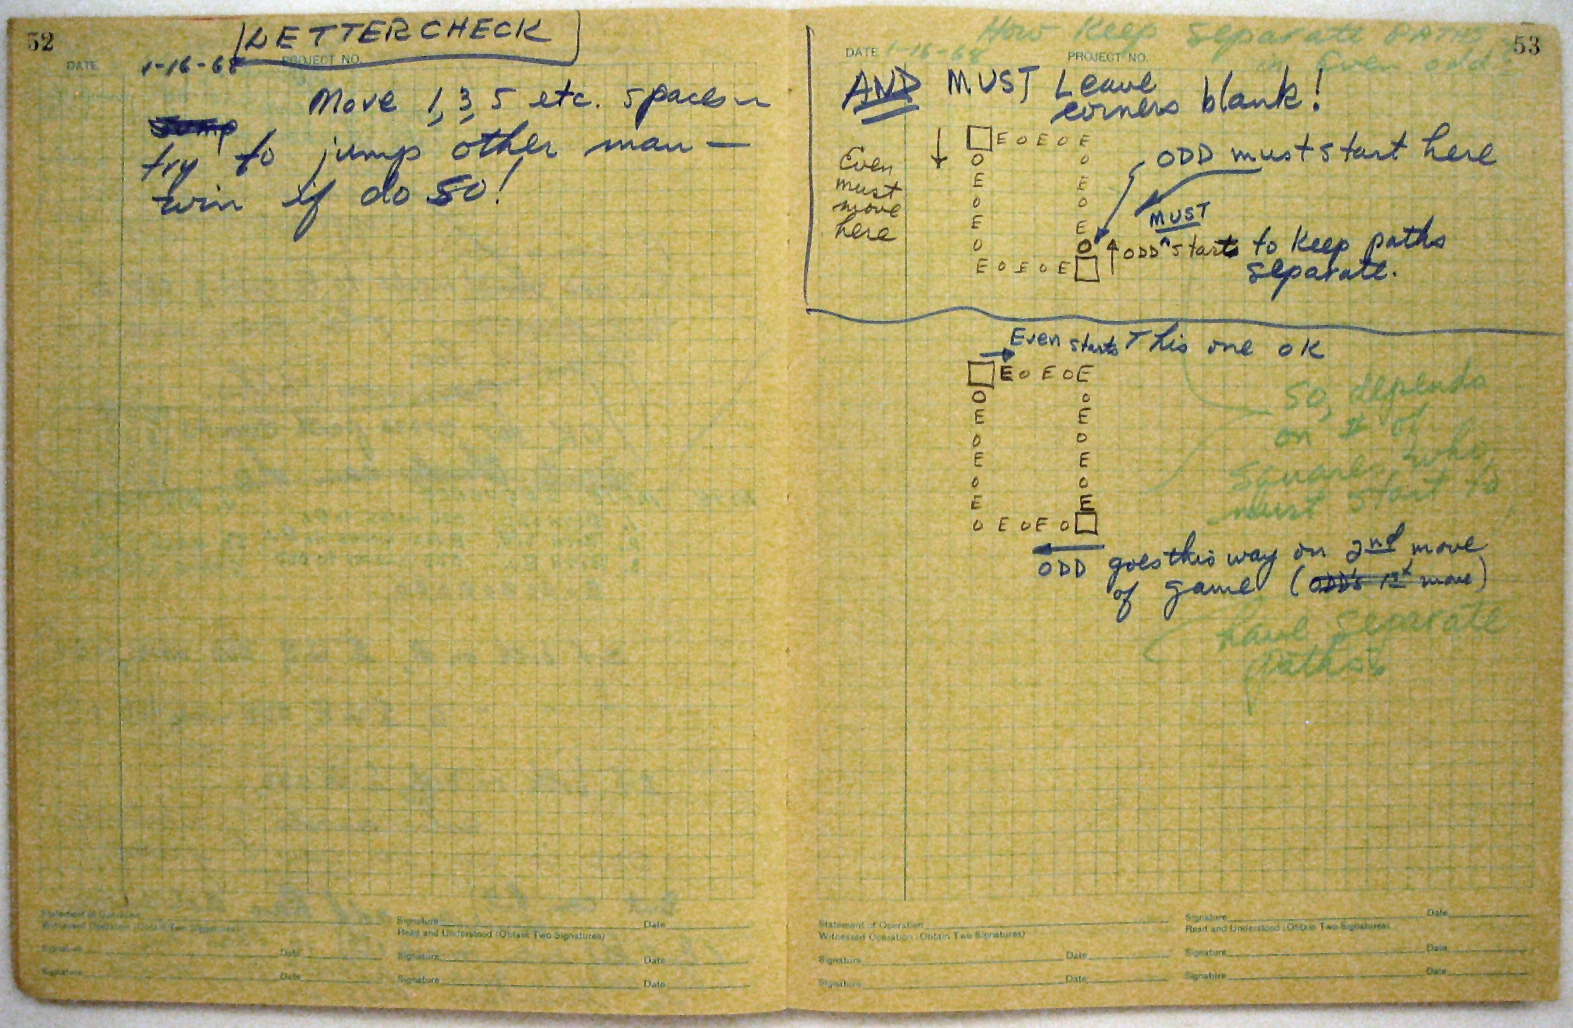 52
LETTERCHECK
DATE 1-16-68 PROJECT NO.
Move 1, 3, 5 etc. spaces
Jump
try to jump other man —
win if do so!
Statement of Operation
Witnessed Operation (Obtain Two Signatures)
Signature Date
Signature Date
Signature Date
Read and Understood (Obtain Two Signatures)
Signature Date
Signature Date
53
How Keep Separate PATHS
in Even odd?
DATE 1-16-68 PROJECT NO.
AND MUST Leave
corners blank!
E O E O E
O O
E E
O O
E E
O O
E O E O E
Even
must
move
here
ODD must start here
MUST
ODD ^ starts to keep paths
separate.
Even starts This one ok
E O E O E
O O
E E
O O
E E
O O
E E
O E O E O
ODD goes this way on 2nd move
of game (ODD's 1st move)
So, depends
on # of
squares who
must start to
have separate
paths.
Statement of Operation
Witnessed Operation (Obtain Two Signatures)
Signature Date
Signature Date
Signature Date
Read and Understood (Obtain Two Signatures)
Signature Date
Signature Date